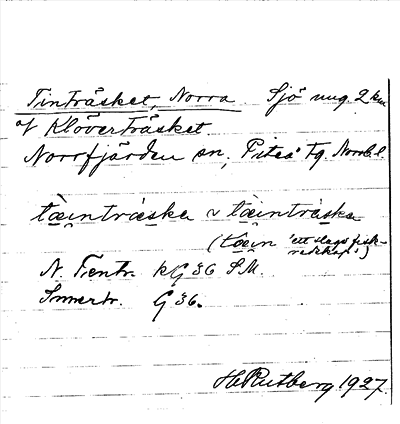 Tinträsket, Norra. Sjö nug. 2 km
af Klöverträsket.
Norrfjärden sn, Piteå tg. Norrb. l.
tæ̀inträska ~ tæ̀inträska
(tæin 'ett slags fisk-
redskap')
N. Tientr. kG 36 S.M.
G 36.
H. Rutberg 1927.